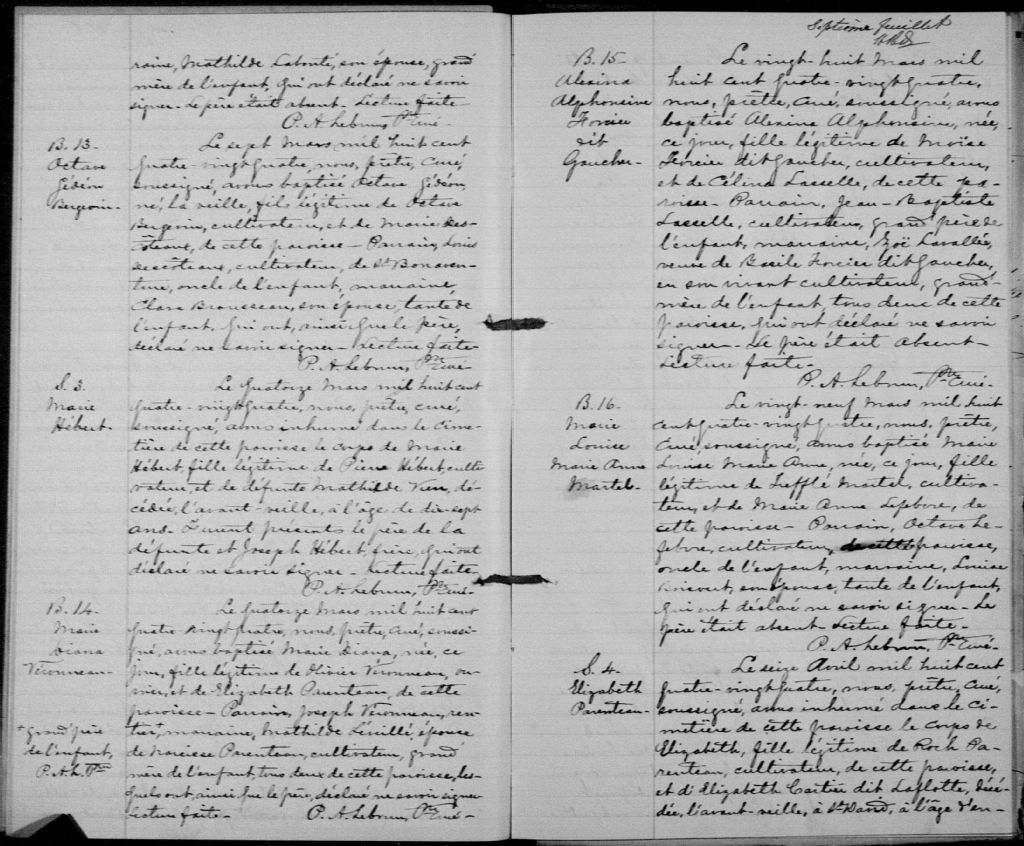 raine, Mathilde Labonté, son épouse, grand'
mère de l'enfant, qui ont déclaré ne savoir
signer - Le père était absent - Lecture faite
P. A. Lebrun, Ptre Curé -
B. 13 -
Octave
Gédéon
Bergeron -
Le sept Mars mil huit cent
quatre-vingt quatre, nous, prêtre, curé,
soussigné, avons baptisé Octave Gédéon,
né, la veille, fils légitime de Octave
Bergeron, cultivateur, et de Marie Des-
côteaux, de cette paroisse - Parrain, Louis
Descôteaux, cultivateur, de St Bonaven-
ture, oncle de l'enfant, marraine,
Clara Brousseau, son épouse, tante de
l'enfant, qui ont, ainsi que le père,
déclaré ne savoir signer - Lecture faite -
P. A. Lebrun, Ptre Curé -
S. 3.
Marie
Hébert -
Le quatorze Mars mil huit cent
quatre-vingt quatre, nous, prêtre, curé,
soussigné, avons inhumé dans le cime-
tière de cette paroisse le corps de Marie
Hébert, fille légitime de Pierre Hébert, culti-
vateur, et de défunte Mathilde, dé-
cédée, l'avant-veille, à l'âge de dix-sept
ans - Furent présents le père de la
défunte et Joseph Hébert, frère, qui ont
déclaré ne savoir signer - Lecture faite
P. A. Lebrun, Ptre Curé -
B. 14 -
Marie
Diana
Véronneau -
Le quatorze Mars mil huit cent
quatre-vingt quatre, nous, prêtre, curé, soussi-
gné, avons baptisé Marie Diana, née, ce
jour, fille légitime de Olivier Véronneau, ou-
vrier, et de Elizabeth Parenteau, de cette
paroisse - Parrain, Joseph Véronneau, ren-
tier,+ marraine, Mathilde Léveillé, épouse
de Narcisse Parenteau, cultivateur, grand'
mère de l'enfant, tous deux de cette paroisse, les-
quels ont, ainsi que le père, déclaré ne savoir signer
Lecture faite - P. A. Lebrun, Ptre Curé -
+ grand'père
de l'enfant,
P. A. L. Ptre
Septième Juillet
B. 15 -
Alexina
Alphonsine
Forcier
dit
Gaucher -
Le vingt-huit Mars mil
huit cent quatre-vingt quatre,
nous, prêtre, curé, soussigné, avons
baptisé Alexina Alphonsine, née,
ce jour, fille légitime de Moïse
Forcier dit Gaucher, cultivateur,
et de Célina Lasselle, de cette pa-
roisse - Parrain, Jean-Baptiste
Lasselle, cultivateur, grand'père de
l'enfant, marraine, Zoë Lavallée,
veuve de Basile Forcier dit Gaucher,
en son vivant cultivateur, grand'
mère de l'enfant, tous deux de cette
paroisse, qui ont déclaré ne savoir
signer - Le père était absent -
Lecture faite -
P. A. Lebrun, Ptre Curé -
B. 16.
Marie
Louise
Marie Anne
Martel -
Le vingt-neuf Mars mil huit
cent quatre-vingt quatre, nous, prêtre,
curé, soussigné, avons baptisé Marie
Louise Marie Anne, née, ce jour, fille
légitime de Martel, cultiva-
teur, et de Marie Anne Lefebvre, de
cette paroisse - Parrain, Octave Le-
febvre, cultivateur, de cette paroisse,
oncle de l'enfant, marraine, Louise
son épouse, tante de l'enfant,
qui ont déclaré ne savoir signer - Le
père était absent - Lecture faite -
P. A. Lebrun, Ptre Curé -
S. 4 -
Elizabeth
Parenteau -
Le seize Avril mil huit cent
quatre-vingt quatre, nous, prêtre, curé,
soussigné, avons inhumé dans le ci-
metière de cette paroisse le corps de
Elizabeth, fille légitime de Roch Pa-
renteau, cultivateur, de cette paroisse,
et d'Elizabeth Cartier dit Laflotte, décé-
dée, l'avant-veille, à St David, à l'âge d'en-